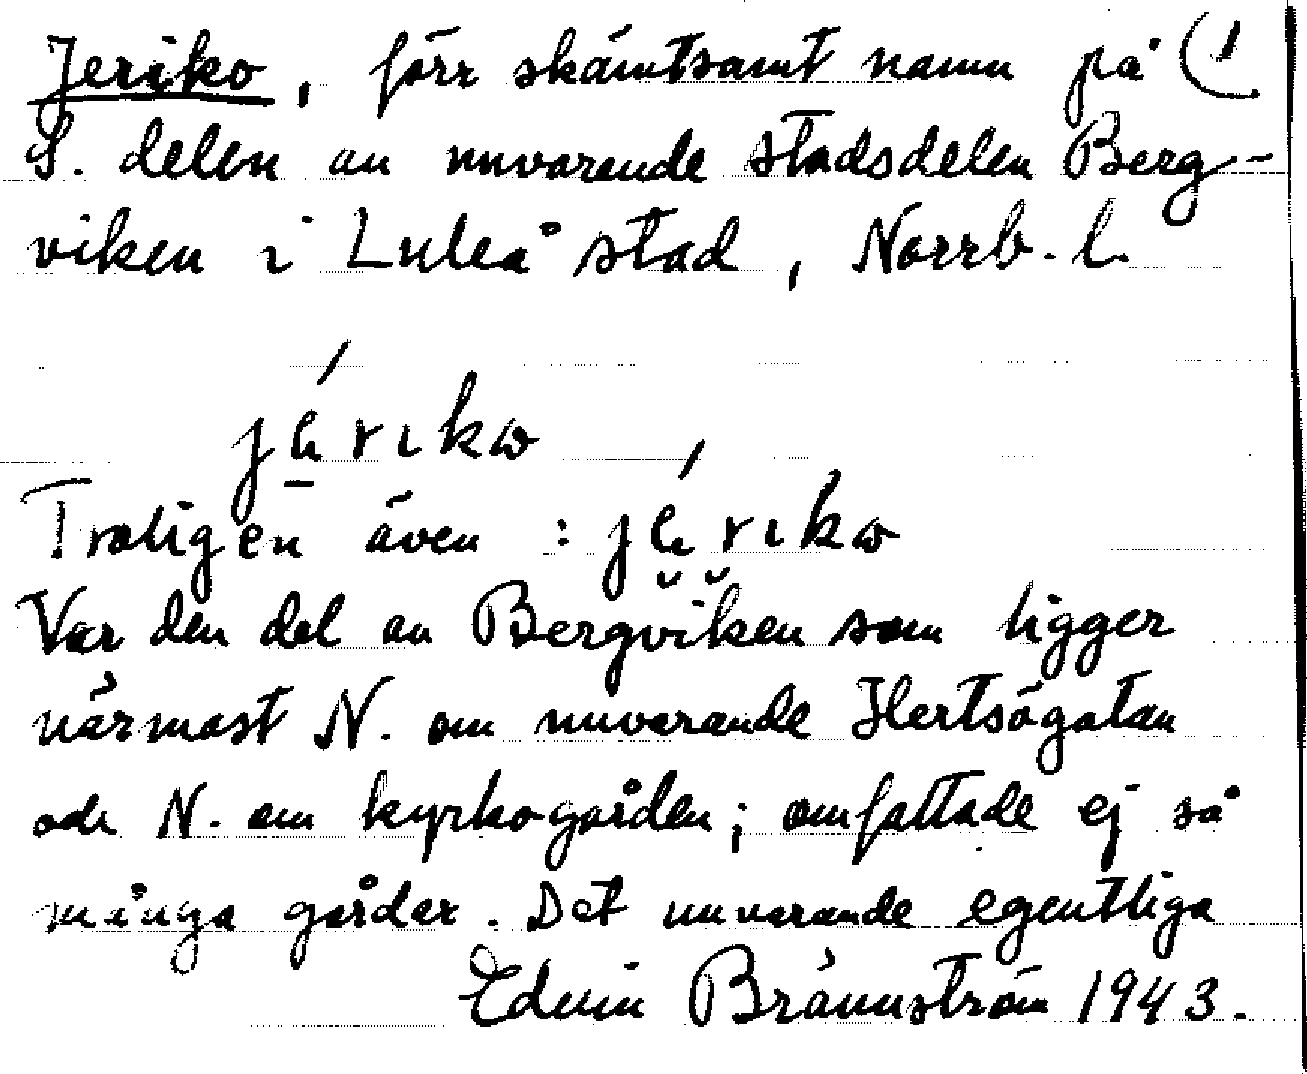 Jeriko, förr skämtsamt namn på (1
S. delen av nuvarande stadsdelen Berg-
viken i Luleå stad, Norrb. l.
Troligen även :
Var den del av Bergviken som ligger
närmast N. om nuvarande Hertsögatan
och N. om kyrkogården; omfattade ej så
många gårdar. Det nuvarande egentliga
Edvin Brännström 1943.